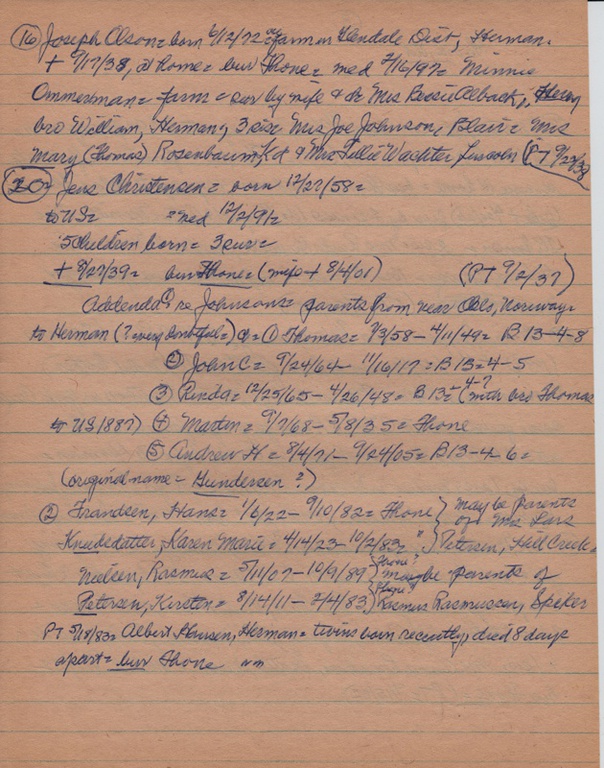 (16) Joseph Olson = born 6/12/72 = farm on Glendale Dist, Herman.
+ 9/17/38, at home = bur Thone = med 2/16/97 = Minnie
Ommerman = farm = sur by wife & da Mrs Alback,
bro William, Herman, 3 sis Mrs Joe Johnson, Blair = Mrs
Mary (Thomas) Rosenbaum, & Mrs Lillie Wachter Lincoln (PT 9/22/38)
(20) Jens Christensen = born 12/27/58 =
to US = = med 12/2/91 =
5 children born = 3 sur =
+ 8/27/39 = bur Thone = (wife + 8/4/01) (PT 9/2/37)
Addenda re Johnsons = parents from near Oslo, Norway =
to Herman (? very doubtful =) (1) Thomas = 7/3/58 - 4/11/49 = B 13-4-8
(2) John C = 9/24/64 - 11/16/17 = B 13 = 4-5
(3) = 12/25/65 - 4/26/48 = B 13 = 4-? (with bro Thomas
to US 1887) (4) Martin = 9/7/68 - 5/8/35 = Thone
(5) Andrew H = 8/4/71 - 9/24/05 = B 13-4-6 =
(original name = Gundersen ?)
(2) Frandsen, Hans = 1/6/22 - 9/10/82 = Thone } may be parents
of Mrs Lars
Knudsdatter, Karen Marie = 4/14/23 - 10/2/83 = " } Petersen, Hill Creek
Nielsen, Rasmus = 5/11/07 - 10/9/89 { Thone? may be parents of
Petersen, Kirsten = 8/14/11 - 2/4/83 { Thone? Rasmus Rasmussen, Spiker
PT 5/18/83 = Albert Hansen, Herman = twins born recently, died 8 days
apart = bur Thone nm